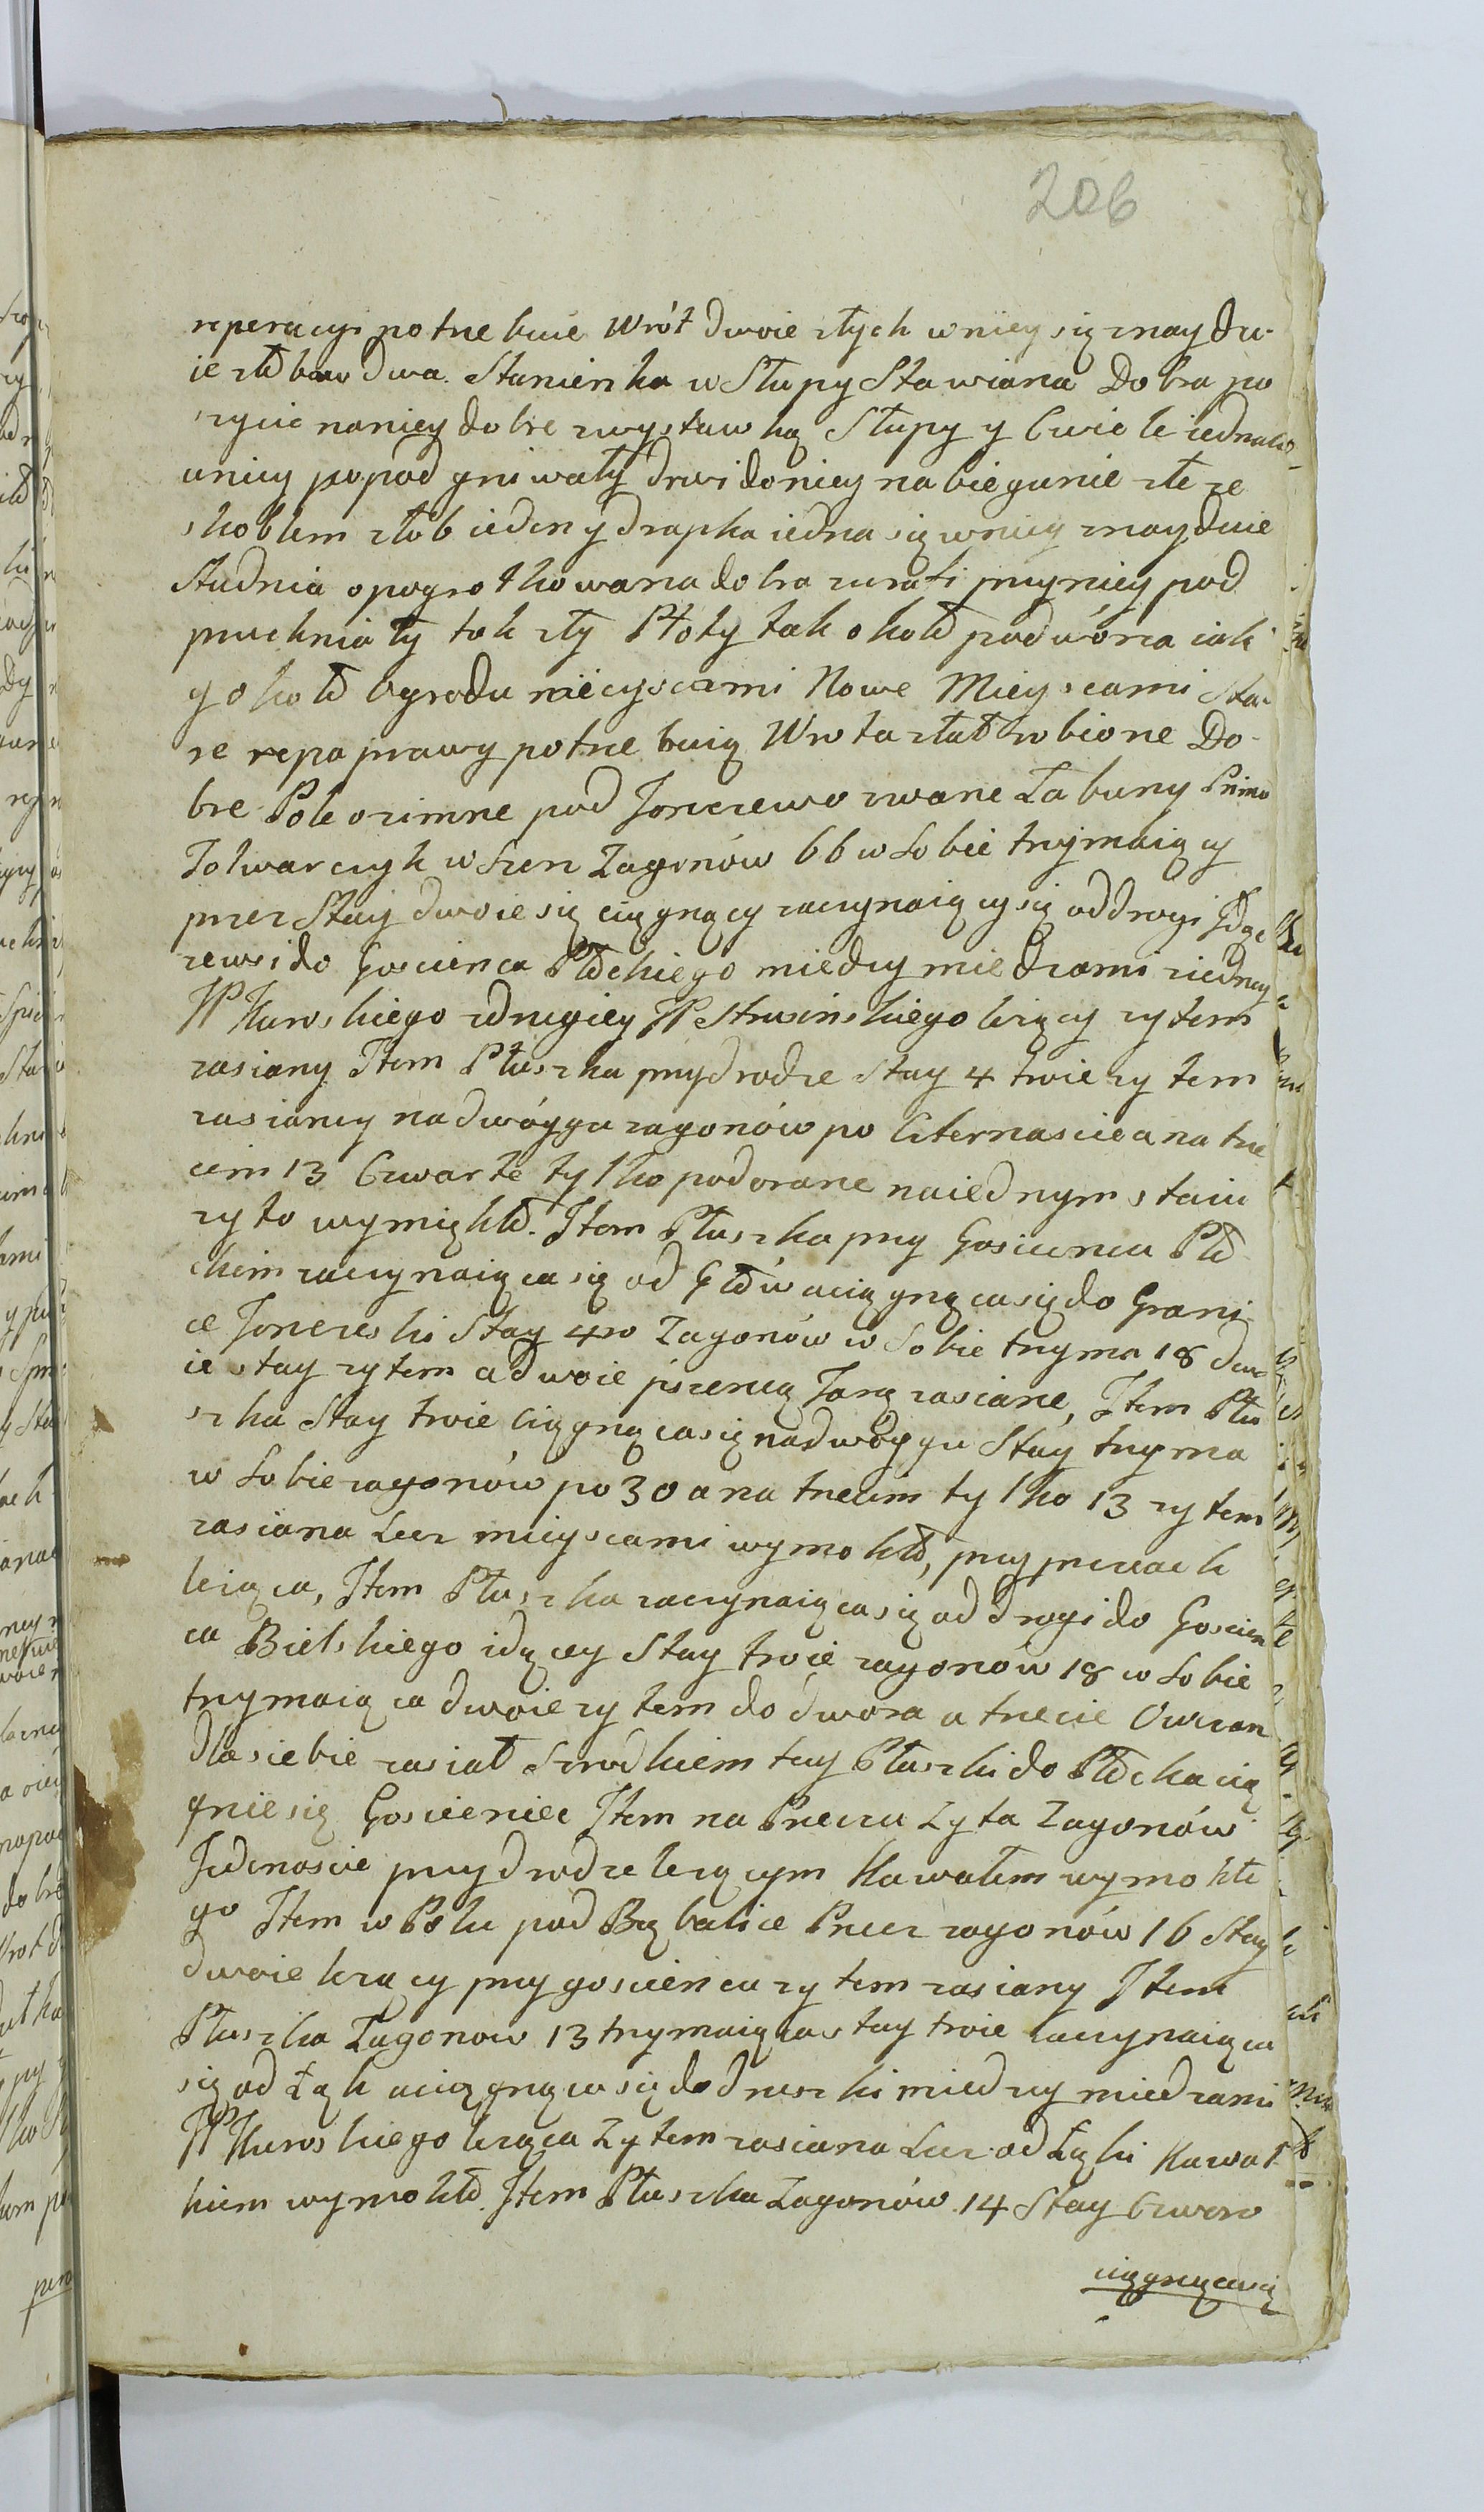 206
reperacyi potrzebuie Wrót dwoie złych w niey się znaydu-
ie żłobów dwa. Stanienka w Słupy Stawiana Dobra po
szycie na niey dobre z wystawką Słupy y Cwiele iednako
u niey popodgniwały drwi do niey na biegunie złe ze
skoblem złób ieden y drapka iedna się w niey znayduie
Studnia opogrotkowana dobra zurati przy niey pod
pruchniały tak zły Płoty tak około podwórca iak
y około Ogrodu mieyscami Nowe Mieyscami Sta-
re repaprawy potrzebuią Wrota złat robione Do-
bre Pole ozimne pod Jonczewo zwane Łabuny Primo
Folwarczyk wszerz Zagonów 66 w sobie trzymaiący
przez Stay dwoie się ciągnący zaczynaiący się od drogi
zewsi do Goscienca Płockiego miedzy miedzami ziedney
JP Kurowskiego z drugiey JP Strusinskiego leżący zytem
zasiany Item Płuszka przy drodze Stay 4 troie zytem
zasianey na dwóygu zagonów po Czternascie a na trze
cim 13 Czwarte tylko podorane na iednym staiu
zyto wymiękło. Item Płuszka przy Gosciencu Pło
ckim zaczynaiąca się od Głów a ciągnąca się do Grani-
ce Jonczeski Stay 4ro Zagonów w Sobie trzyma 18 dwo
ie stay zytem a dwoie pszenicą Jarą zasiane, Item Płu
szka Stay troie Ciągnąca się na dwóygu Stay trzyma
w Sobie zagonów po 30 a na trzecim tylko 13 zytem
zasiana Lecz mieyscami wymokło, przy przecach
leżąca, Item Płuszka zaczynaiąca się od drogi do Goscien
ca Bielskiego idącey Stay troie zagonów 18 w Sobie
trzymaiąca dwoie zytem do dwora a trzecie Owczarz
dla siebie zasiał Srzodkiem tey Płuszki do Płocka cią
gnie się Goscieniec Item na Przeczu Zyta Zagonów
Jedenascie przy drodze leżącym Kawałem wymokłe
go Item w Polu pod Bębalice Przecz zagonów 16 Stay
dwoie leżący przy goscieńcu zytem zasiany Item
Płuszka Zagonow 13 trzymaiąca stay troie Zaczynaiąca
się od Łąk a ciągnąca się do druszki miedzy miedzami
JP Kurowskiego leżąca Zytem zasiana Lecz od Łąki Kawał
kiem wymokło. Item Płuszka Zagonów 14 Stay Czworo
ciągnącasię